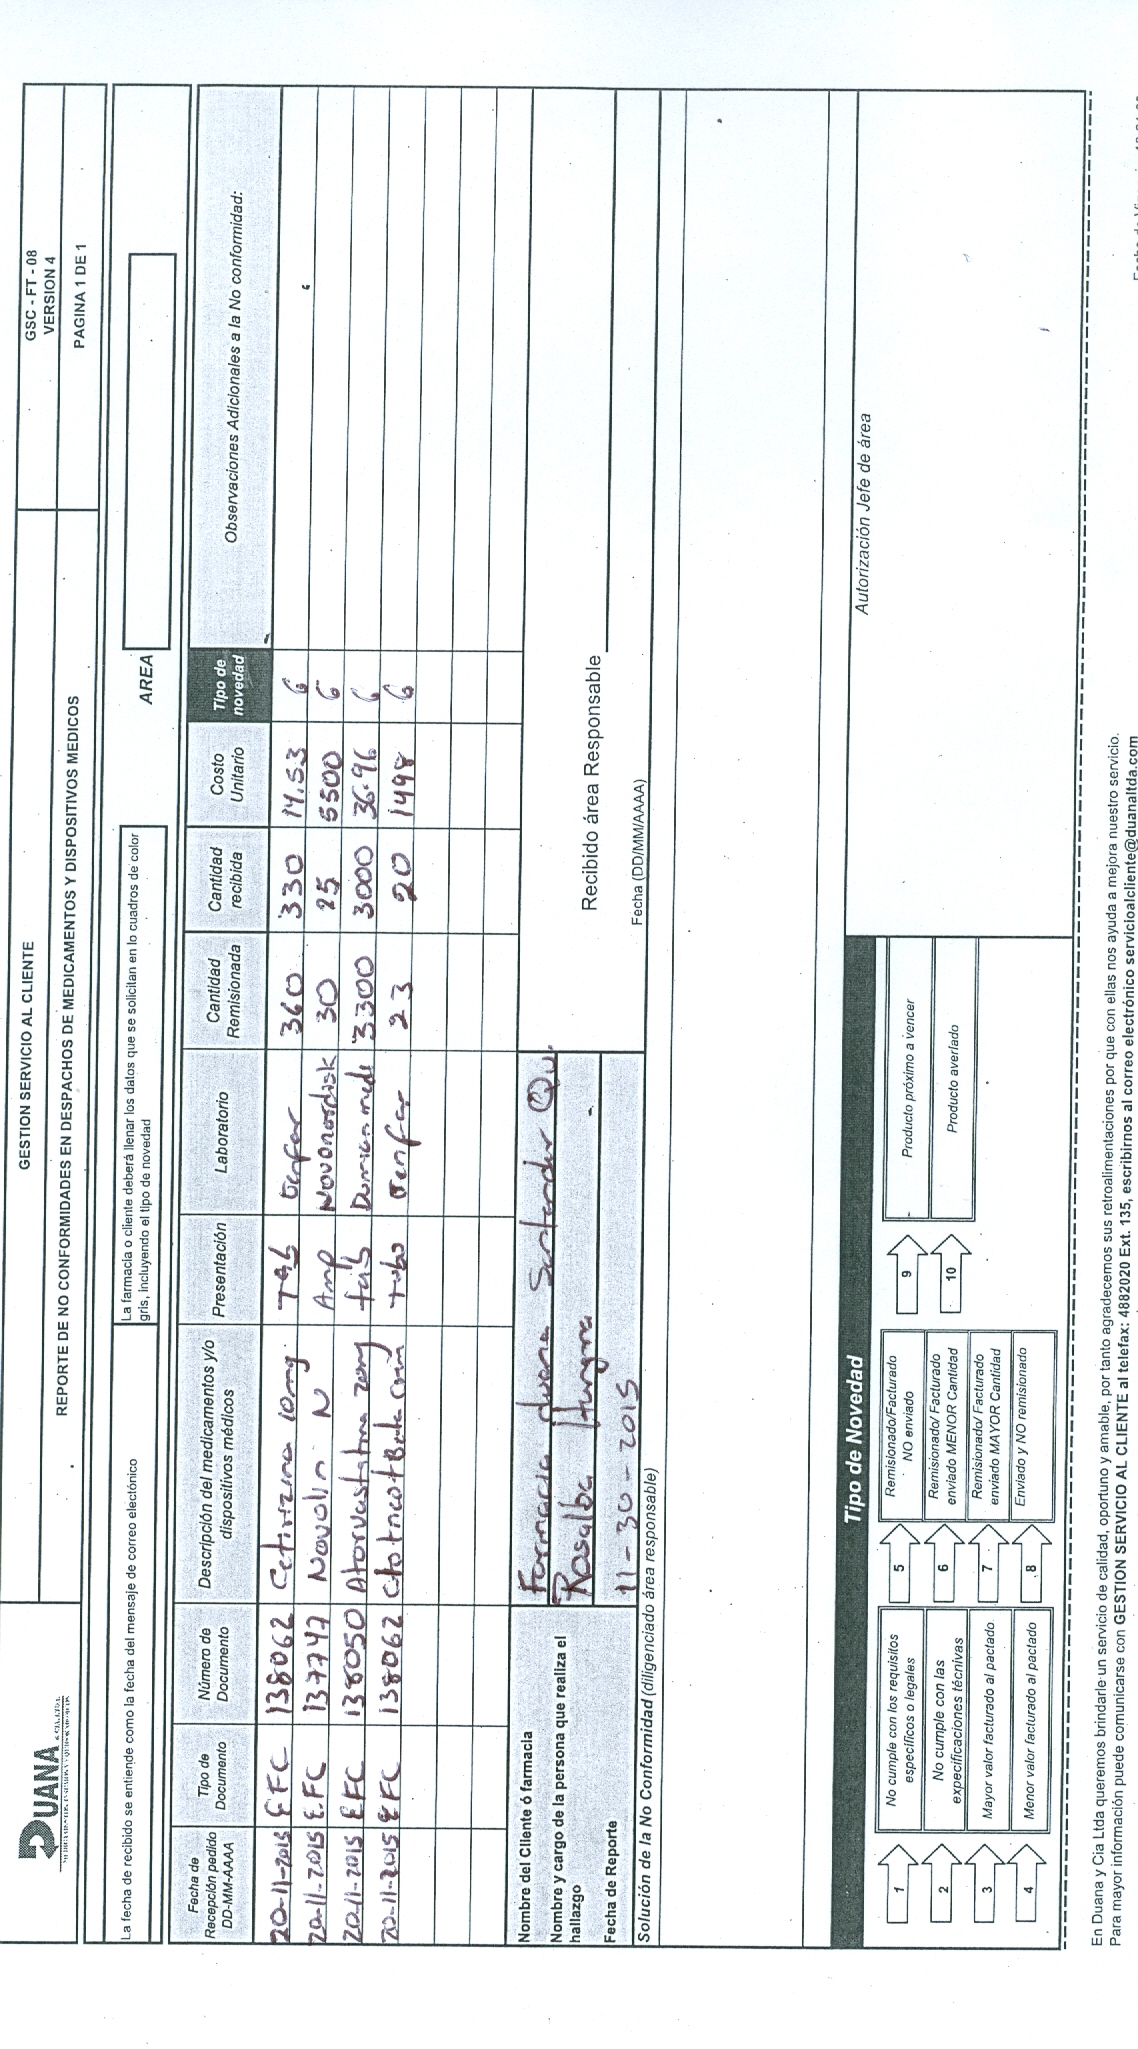 DUANA
& CIA. LTDA.
GESTION SERVICIO AL CLIENTE
GSC - FT - 08
VERSION 4
REPORTE DE NO CONFORMIDADES EN DESPACHOS DE MEDICAMENTOS Y DISPOSITIVOS MEDICOS
PAGINA 1 DE 1
La fecha de recibido se entiende como la fecha del mensaje de correo electónico
La farmacia o cliente deberá llenar los datos que se solicitan en lo cuadros de color
gris, incluyendo el tipo de novedad
AREA
Fecha de Recepción pedido DD-MM-AAAA Tipo de Documento Número de Documento Descripción del medicamentos y/o dispositivos médicos Presentación Laboratorio Cantidad Remisionada Cantidad recibida Costo Unitario Tipo de novedad Observaciones Adicionales a la No conformidad:
20-11-2015 EFC 138062 Cetirizina 10mg Tab Genfar 360 330 14.53 6
20-11-2015 EFC 137747 Novolin N Amp Novonordisk 30 25 5500 6
20-11-2015 EFC 138050 Atorvastatina 20mg tab 3300 3000 36.96 6
20-11-2015 EFC 138062 tubo Genfar 23 20 1498 6
Nombre del Cliente ó farmacia Farmacia duana Santander Qui.
Nombre y cargo de la persona que realiza el
hallazgo Rosalba
Recibido área Responsable
Fecha de Reporte 11-30-2015
Fecha (DD/MM/AAAA)
Solución de la No Conformidad (diligenciado área responsable)
Tipo de Novedad
Autorización Jefe de área
1 No cumple con los requisitos específicos o legales
2 No cumple con las expecificaciones técnivas
3 Mayor valor facturado al pactado
4 Menor valor facturado al pactado
5 Remisionado/Facturado NO enviado
6 Remisionado/ Facturado enviado MENOR Cantidad
7 Remisionado/ Facturado enviado MAYOR Cantidad
8 Enviado y NO remisionado
9 Producto próximo a vencer
10 Producto averiado
En Duana y Cia Ltda queremos brindarle un servicio de calidad, oportuno y amable, por tanto agradecemos sus retroalimentaciones por que con ellas nos ayuda a mejora nuestro servicio.
Para mayor información puede comunicarse con GESTION SERVICIO AL CLIENTE al telefax: 4882020 Ext. 135, escribirnos al correo electrónico servicioalcliente@duanaltda.com